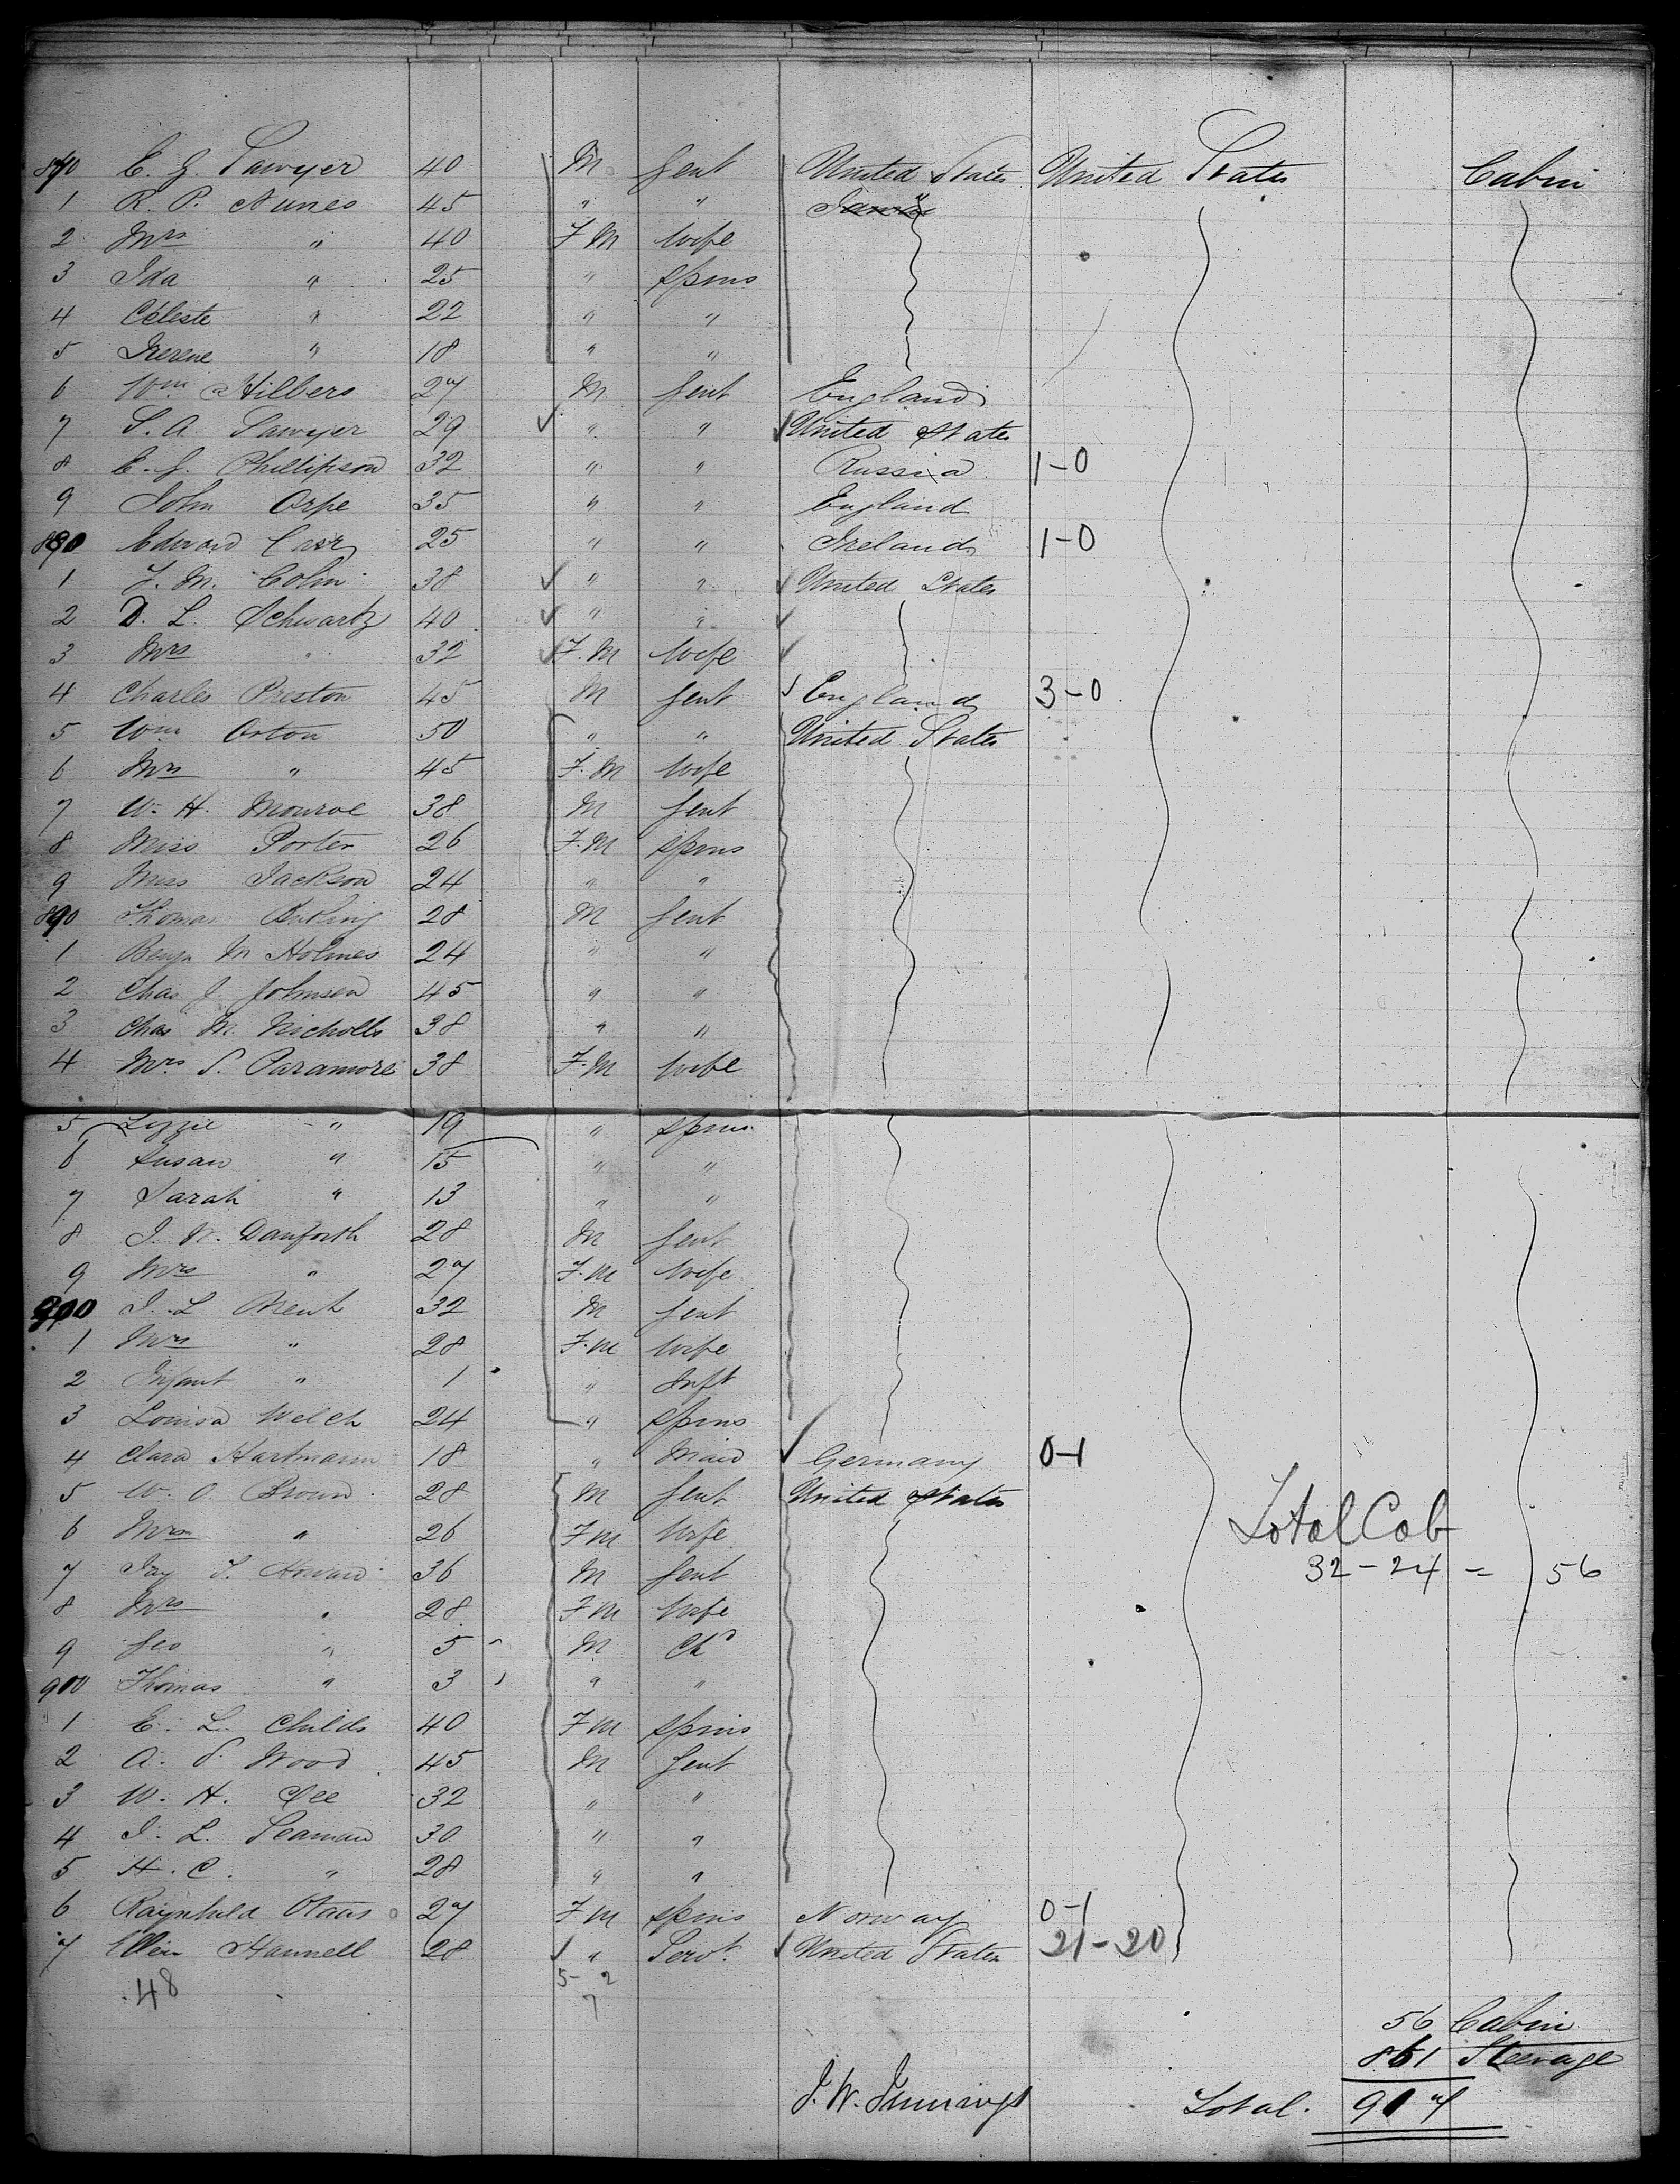 870 C. G. Sawyer 40 M Gent United States United States Cabin
1 R. P. Nunes 45 " " "
2 Mrs " 40 F M Wife
3 Ida " 25 " Spins
4 Celeste " 22 " "
5 Irerene " 18 " "
6 Wm Hilbers 27 M Gent England
7 S. A. Sawyer 29 " " United States
8 C. J. Phillipson 32 " " Russia 1-0
9 John Orpe 35 " " England
880 Edward Carr 25 " " Ireland 1-0
1 F. M. Colin 38 " " United States
2 D. L. Schwartz 40 " "
3 Mrs " 32 F. M Wife
4 Charles Preston 45 M Gent England 3-0
5 Wm Orton 50 " " United States
6 Mrs " 45 F. M Wife
7 W. H. Monroe 38 M Gent
8 Miss Porter 26 F. M Spins
9 Miss Jackson 24 " "
890 Thomas 28 M Gent
1 Benjn M Holmes 24 " "
2 Chas J. Johnson 45 " "
3 Chas M. Nicholls 38 " "
4 Mrs S. Paramore 38 F. M Wife
5 Lizzie " 19 " Spins
6 Susan " 15 " "
7 Sarah " 13 " "
8 J. N. Danforth 28 M Gent
9 Mrs " 27 F. M Wife
900 J. L 32 M Gent
1 Mrs " 28 F. M Wife
2 Infant " 1 " Inft
3 Louisa Welch 24 " Spins
4 Clara Hartmann 18 " Maid Germany 0-1
5 W. O. Brown 28 M Gent United States
6 Mrs " 26 F M Wife
Total Cab
7 Jay T. Howard 36 M Gent 32-24 = 56
8 Mrs " 28 F M Wife
9 Geo " 5 M Chd
900 Thomas " 3 " "
1 E. L. Childs 40 F M Spins
2 A. S. Wood 45 M Gent
3 W. H. 32 " "
4 J. L. Seaman 30 " "
5 H. C. " 28 " "
6 27 F M Spins Norway 0-1
7 Ellen Hannell 28 " Servt. United States 21-20
48 5-2
7
56 Cabin
861 Steerage
J. W. Jennings Total. 917